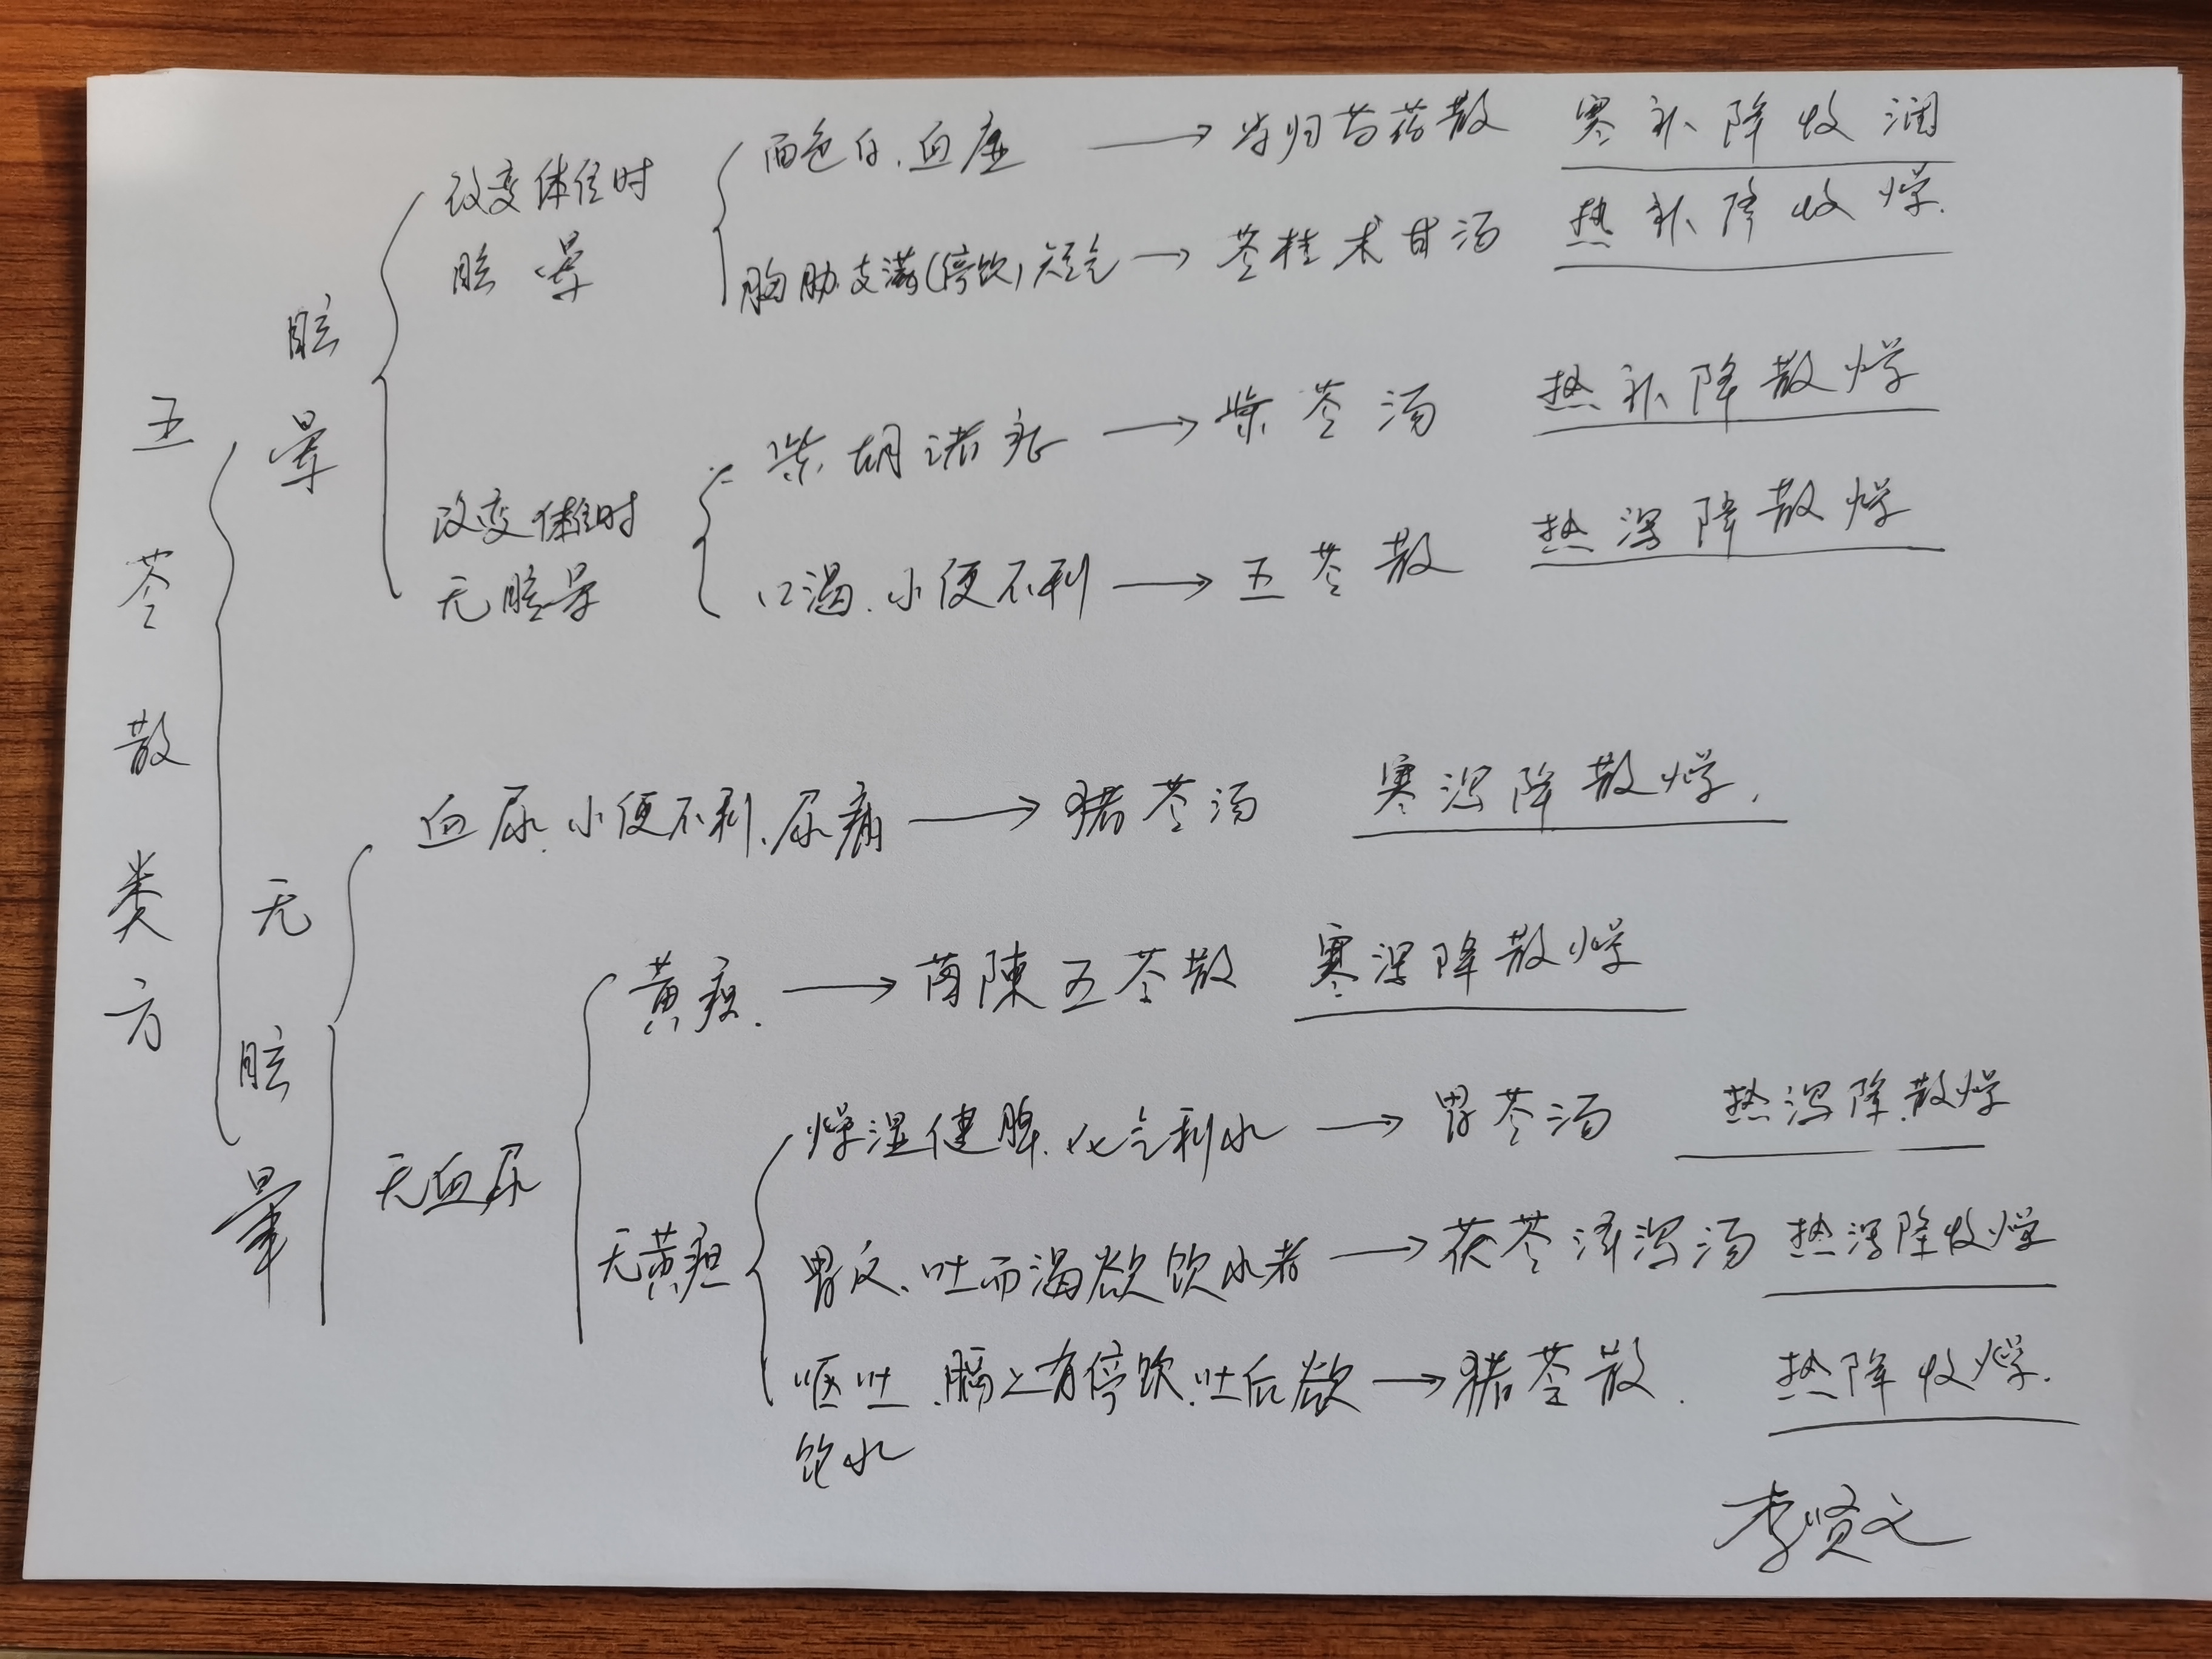 五苓散类方
眩晕
改变体位时
眩晕
面色白、血虚 → 当归芍药散 寒补降收润
胸胁支满(停饮)短气 → 苓桂术甘汤 热补降收燥.
改变体位时
无眩晕
柴胡诸症 → 柴苓汤 热补降散燥
口渴、小便不利 → 五苓散 热泻降散燥
无眩晕
血尿、小便不利、尿痛 → 猪苓汤 寒泻降散燥.
无血尿
黄疸. → 茵陳五苓散 寒泻降散燥
无黄疸
燥湿健脾、化气利水 → 胃苓汤 热泻降散燥
胃反、吐而渴欲饮水者 → 茯苓泽泻汤 热泻降收燥
呕吐、膈上有停饮、吐后欲 → 猪苓散. 热降收燥.
饮水
李贤文